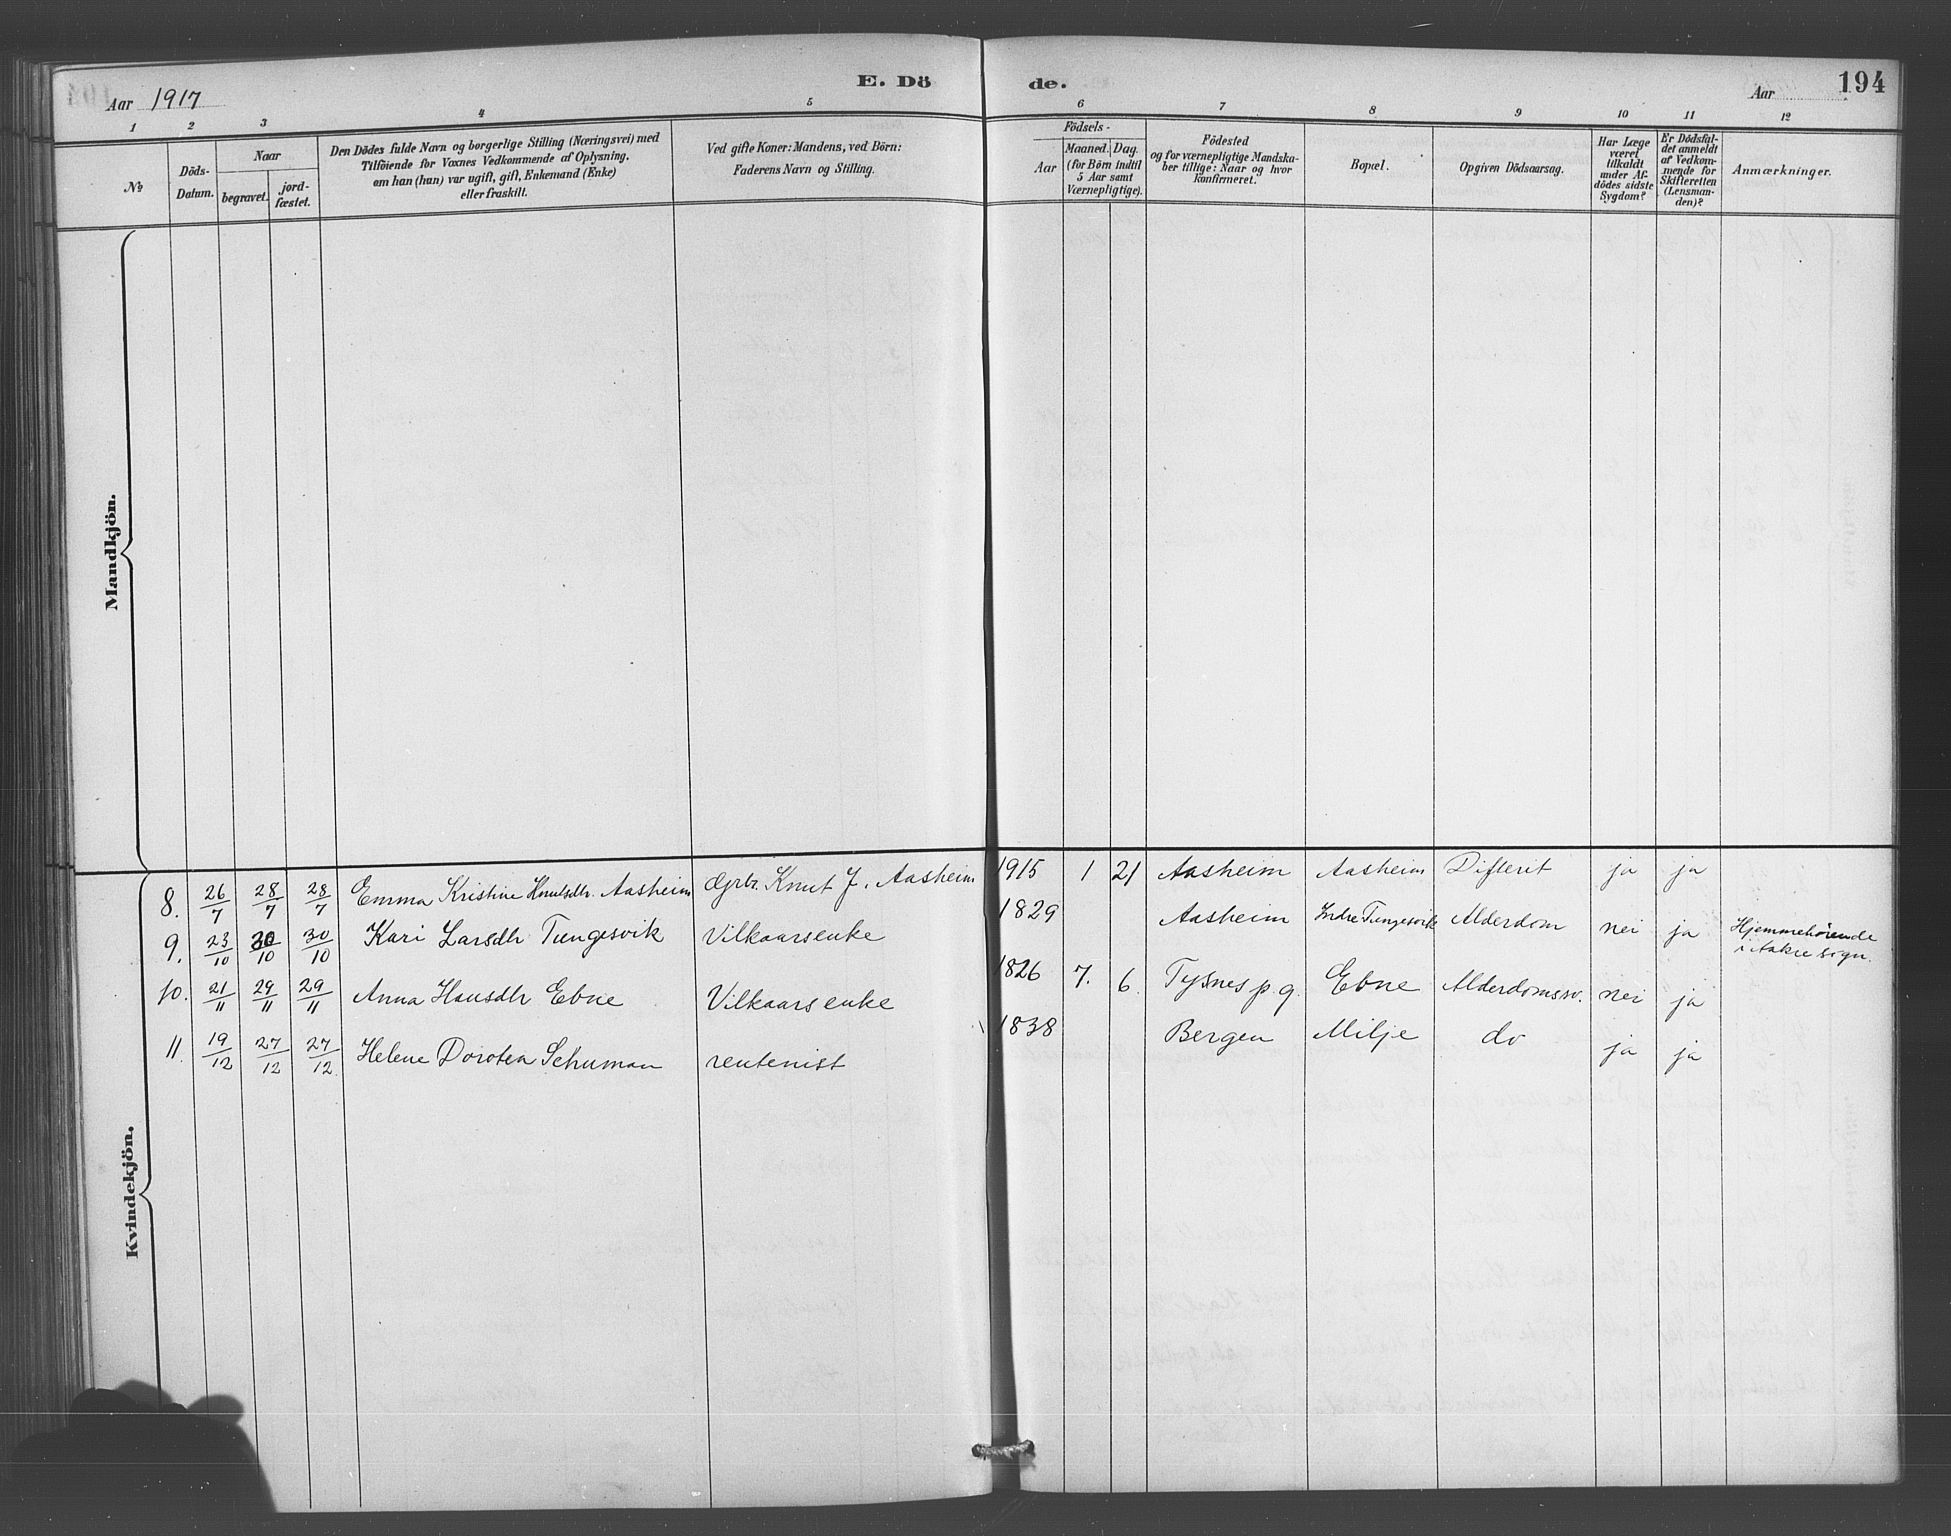 E. Dö de.
194
Aar 1917
Aar
1 2 3 4 5 6 7 8 9 10 11 12
No
Döds-Datum.
Naar
begravet.
jord-fæstet.
Den Dödes fulde Navn og borgerlige Stilling (Næringsvei) med
Tilföiende for Voxnes Vedkommende af Oplysning,
om han (hun) var ugift, gift, Enkemand (Enke)
eller fraskilt.
Ved gifte Koner: Mandens, ved Börn:
Faderens Navn og Stilling.
Födsels-
Aar
Maaned. Dag.
(for Börn indtil
5 Aar samt
Værnepligtige).
Födested
og for værnepligtige Mandska-
ber tillige: Naar og hvor
konfirmeret.
Bopæl.
Opgiven Dödsaarsag.
Har Læge
været
tilkaldt
under Af-
dödes sidste
Sygdom?
Er Dödsfal-
det anmeldt
af Vedkom-
mende for
Skifteretten
(Lensman-
den)?
Anmærkninger.
Mandkjön.
Kvindekjön.
8. 26/7 28/7 28/7 Emma Kristine Knutsdtr. Aasheim Gjrbr. Knut J. Aasheim 1915 1 21 Aasheim Aasheim Difterit ja ja
9. 23/10 30/10 30/10 Kari Larsdtr Tungesvik Vilkaarsenke 1829 Aasheim Indre Tungesvik Alderdom nei ja Hjemmehörende
i Aakre sogn.
10. 21/11 29/11 29/11 Anna Hansdtr Ebne Vilkaarsenke 1826 7. 6. Tysnes p. g. Ebne Alderdomssv. nei ja
11. 19/12 27/12 27/12 Helene Dorotea Schuman rentenist 1838 Bergen Milje do ja ja